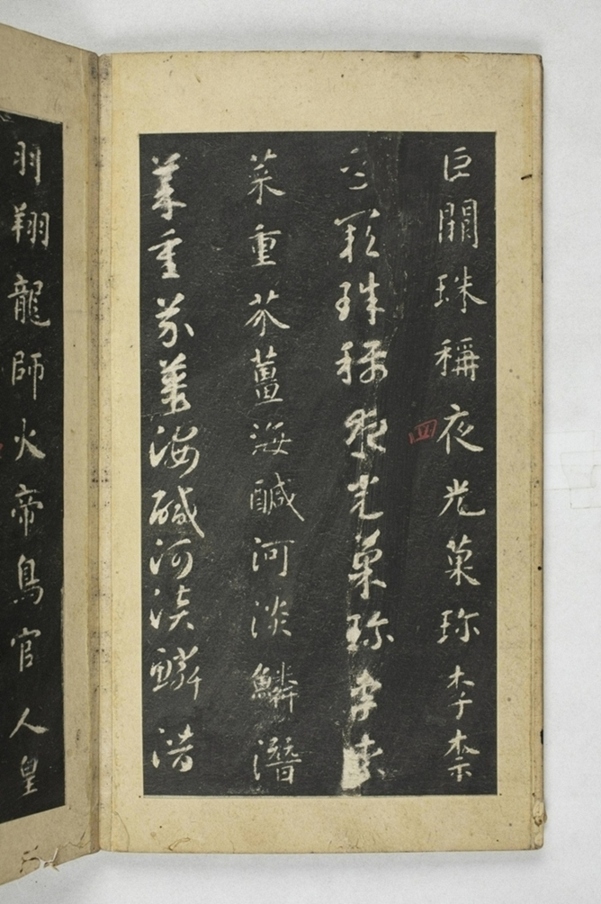 巨闕珠稱夜光菓珍李柰
四
巨闕珠稱夜光菓珍李柰
菜重芥薑海鹹河淡鱗潛
菜重芥薑海鹹河淡鱗潛
羽翔龍師火帝鳥官人皇